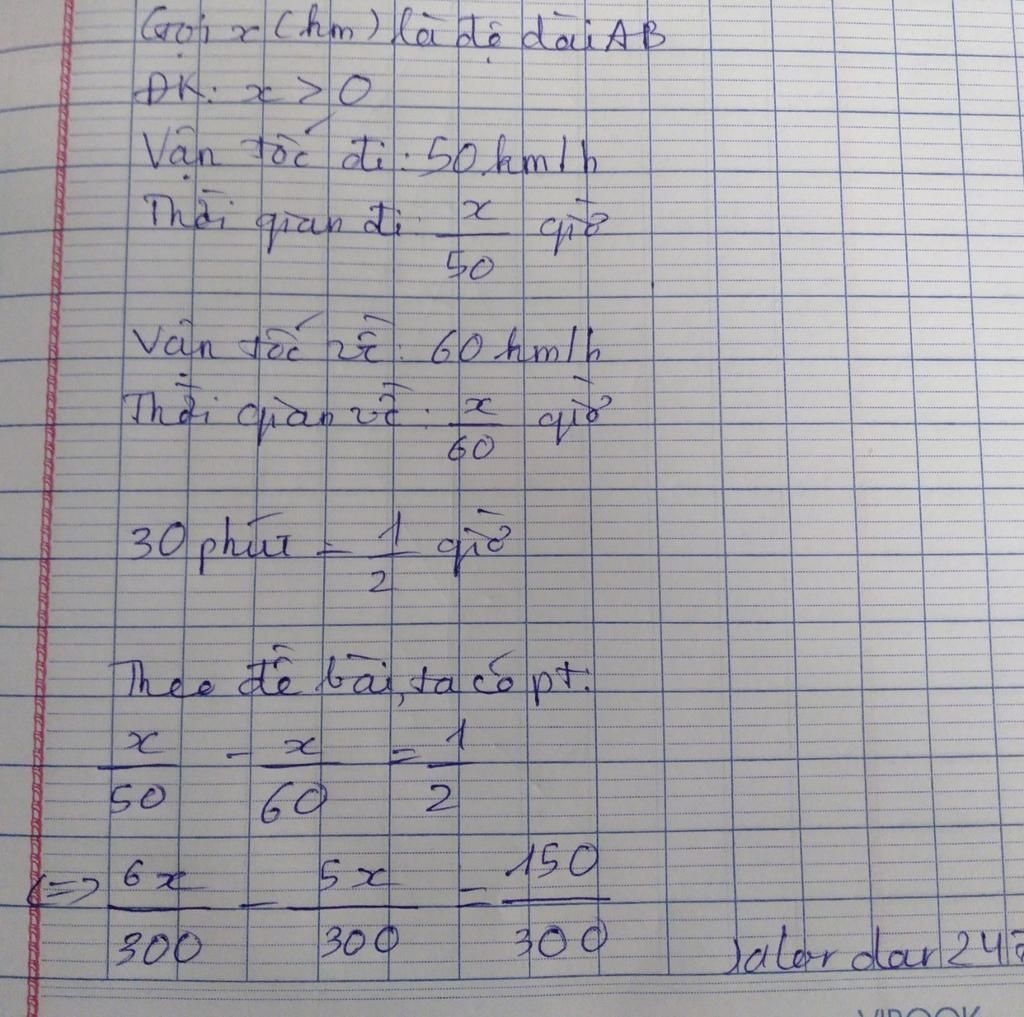 Gọi x (km) là độ dài AB
ĐK: x > 0
Vận tốc đi: 50 km/h
Thời gian đi: x/50 giờ
Vận tốc về: 60 km/h
Thời gian về: x/60 giờ
30 phút = 1/2 giờ
Theo đề bài, ta có pt:
x/50 - x/60 = 1/2
<=> 6x/300 - 5x/300 = 150/300